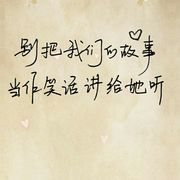 别把我们的故事
当作笑话讲给她听